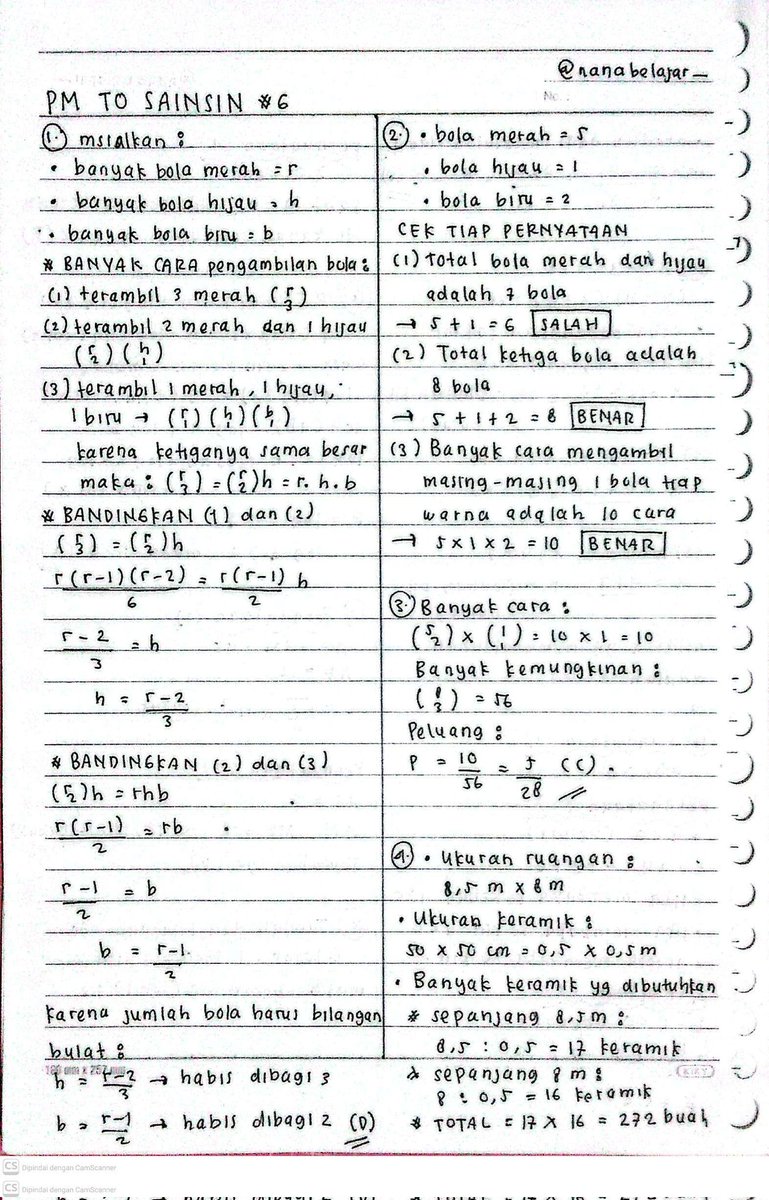 @nanabelajar_
No.
PM TO SAINSIN #6
1. misalkan :
• banyak bola merah = r
• banyak bola hijau = h
• banyak bola biru = b
* BANYAK CARA pengambilan bola :
(1) terambil 3 merah (r 3)
(2) terambil 2 merah dan 1 hijau
(r 2) (h 1)
(3) terambil 1 merah, 1 hijau,
1 biru → (r 1) (h 1) (b 1)
karena ketiganya sama besar
maka : (r 3) = (r 2)h = r. h. b
* BANDINGKAN (1) dan (2)
(r 3) = (r 2)h
r(r-1)(r-2)/6 = r(r-1)/2 h
r-2/3 = h
h = r-2/3
* BANDINGKAN (2) dan (3)
(r 2)h = rhb
r(r-1)/2 = rb
r-1/2 = b
b = r-1/2
karena jumlah bola harus bilangan
bulat :
h = r-2/3 → habis dibagi 3
b = r-1/2 → habis dibagi 2 (D)
2. • bola merah = 5
• bola hijau = 1
• bola biru = 2
CEK TIAP PERNYATAAN
(1) Total bola merah dan hijau
adalah 7 bola
→ 5 + 1 = 6 SALAH
(2) Total ketiga bola adalah
8 bola
→ 5 + 1 + 2 = 8 BENAR
(3) Banyak cara mengambil
masing-masing 1 bola tiap
warna adalah 10 cara
→ 5 x 1 x 2 = 10 BENAR
3. Banyak cara :
(5 2) x (1 1) = 10 x 1 = 10
Banyak kemungkinan :
(8 3) = 56
Peluang :
P = 10/56 = 5/28 (C).
4. • Ukuran ruangan :
8,5 m x 8 m
• Ukuran keramik :
50 x 50 cm = 0,5 x 0,5 m
• Banyak keramik yg dibutuhkan
* sepanjang 8,5 m :
8,5 : 0,5 = 17 keramik
* sepanjang 8 m :
8 : 0,5 = 16 keramik
* TOTAL = 17 x 16 = 272 buah
CS Dipindai dengan CamScanner
CS Dipindai dengan CamScanner